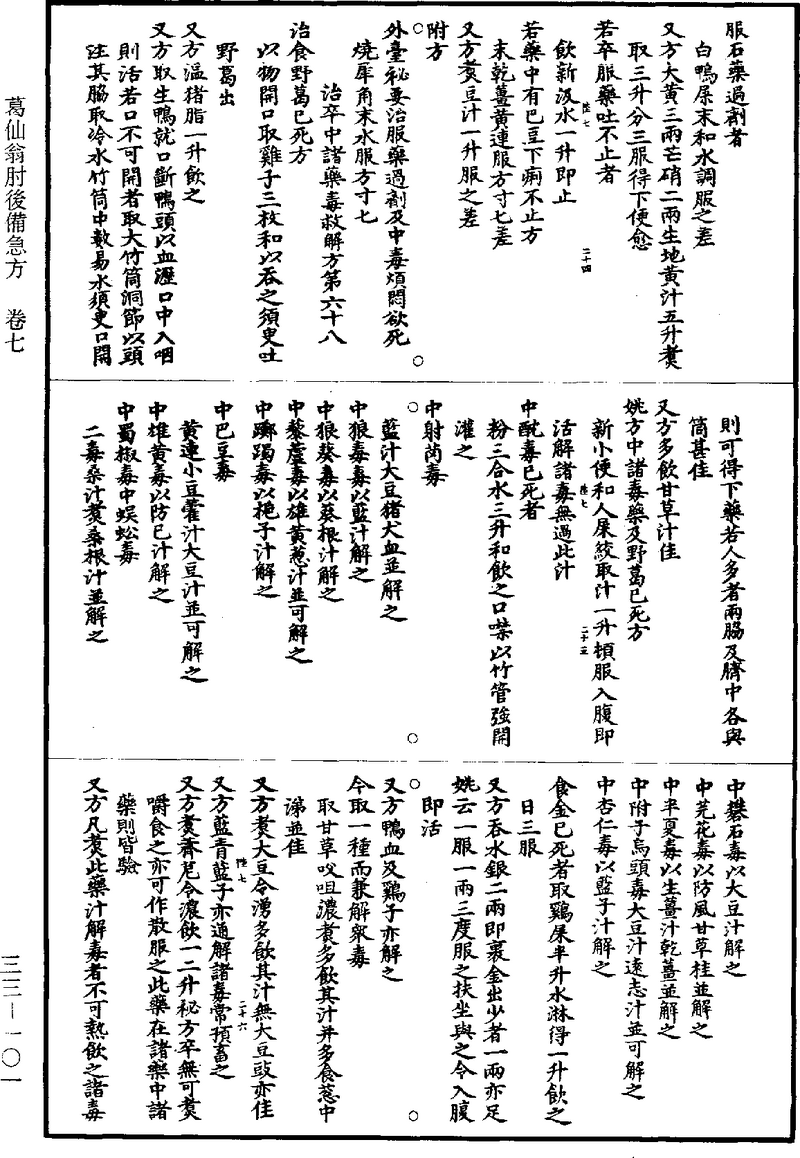 葛仙翁肘後備急方　卷七
三三—一〇一
服石藥過劑者
白鴨屎末和水調服之差
又方大黃三兩芒硝二兩生地黃汁五升煑
取三升分三服得下便愈
若卒服藥吐不止者
陸七
飲新汲水一升即止
二十四
若藥中有巴豆下痢不止方
末乾薑黃連服方寸匕差
又方煑豆汁一升服之差
附方
外臺祕要治服藥過劑及中毒煩悶欲死
燒犀角末水服方寸匕
治卒中諸藥毒救解方第六十八
治食野葛已死方
以物開口取雞子三枚和以吞之須臾吐
野葛出
又方溫猪脂一升飲之
又方取生鴨就口斷鴨頭以血瀝口中入咽
則活若口不可開者取大竹筒洞節以頭
注其脇取冷水竹筒中數易水須臾口開
則可得下藥若人多者兩脇及臍中各與
筒甚佳
又方多飲甘草汁佳
姚方中諸毒藥及野葛已死方
陸七
新小便和人屎絞取汁一升頓服入腹即
二十五
活解諸毒無過此汁
中酖毒已死者
粉三合水三升和飲之口噤以竹管強開
灌之
中射茵毒
藍汁大豆猪犬血並解之
中狼毒毒以藍汁解之
中狼葵毒以葵根汁解之
中藜蘆毒以雄黃葱汁並可解之
中躑躅毒以梔子汁解之
中巴豆毒
黃連小豆藿汁大豆汁並可解之
中雄黃毒以防已汁解之
中蜀椒毒中蜈蚣毒
二毒桑汁煑桑根汁並解之
中礬石毒以大豆汁解之
中芫花毒以防風甘草桂並解之
中半夏毒以生薑汁乾薑並解之
中附子烏頭毒大豆汁遠志汁並可解之
中杏仁毒以藍子汁解之
食金已死者取鷄屎半升水淋得一升飲之
日三服
又方吞水銀二兩即裹金出少者一兩亦足
姚云一服一兩三度服之扶坐與之令入腹
即活
又方鴨血及鷄子亦解之
今取一種而兼解衆毒
取甘草㕮咀濃煑多飲其汁并多食葱中
涕並佳
又方煑大豆令湧多飲其汁無大豆豉亦佳
陸七
又方藍青藍子亦通解諸毒常預畜之
二十六
又方煑薺苨令濃飲一二升秘方卒無可煑
嚼食之亦可作散服之此藥在諸藥中諸
藥則皆驗
又方凡煑此藥汁解毒者不可熱飲之諸毒